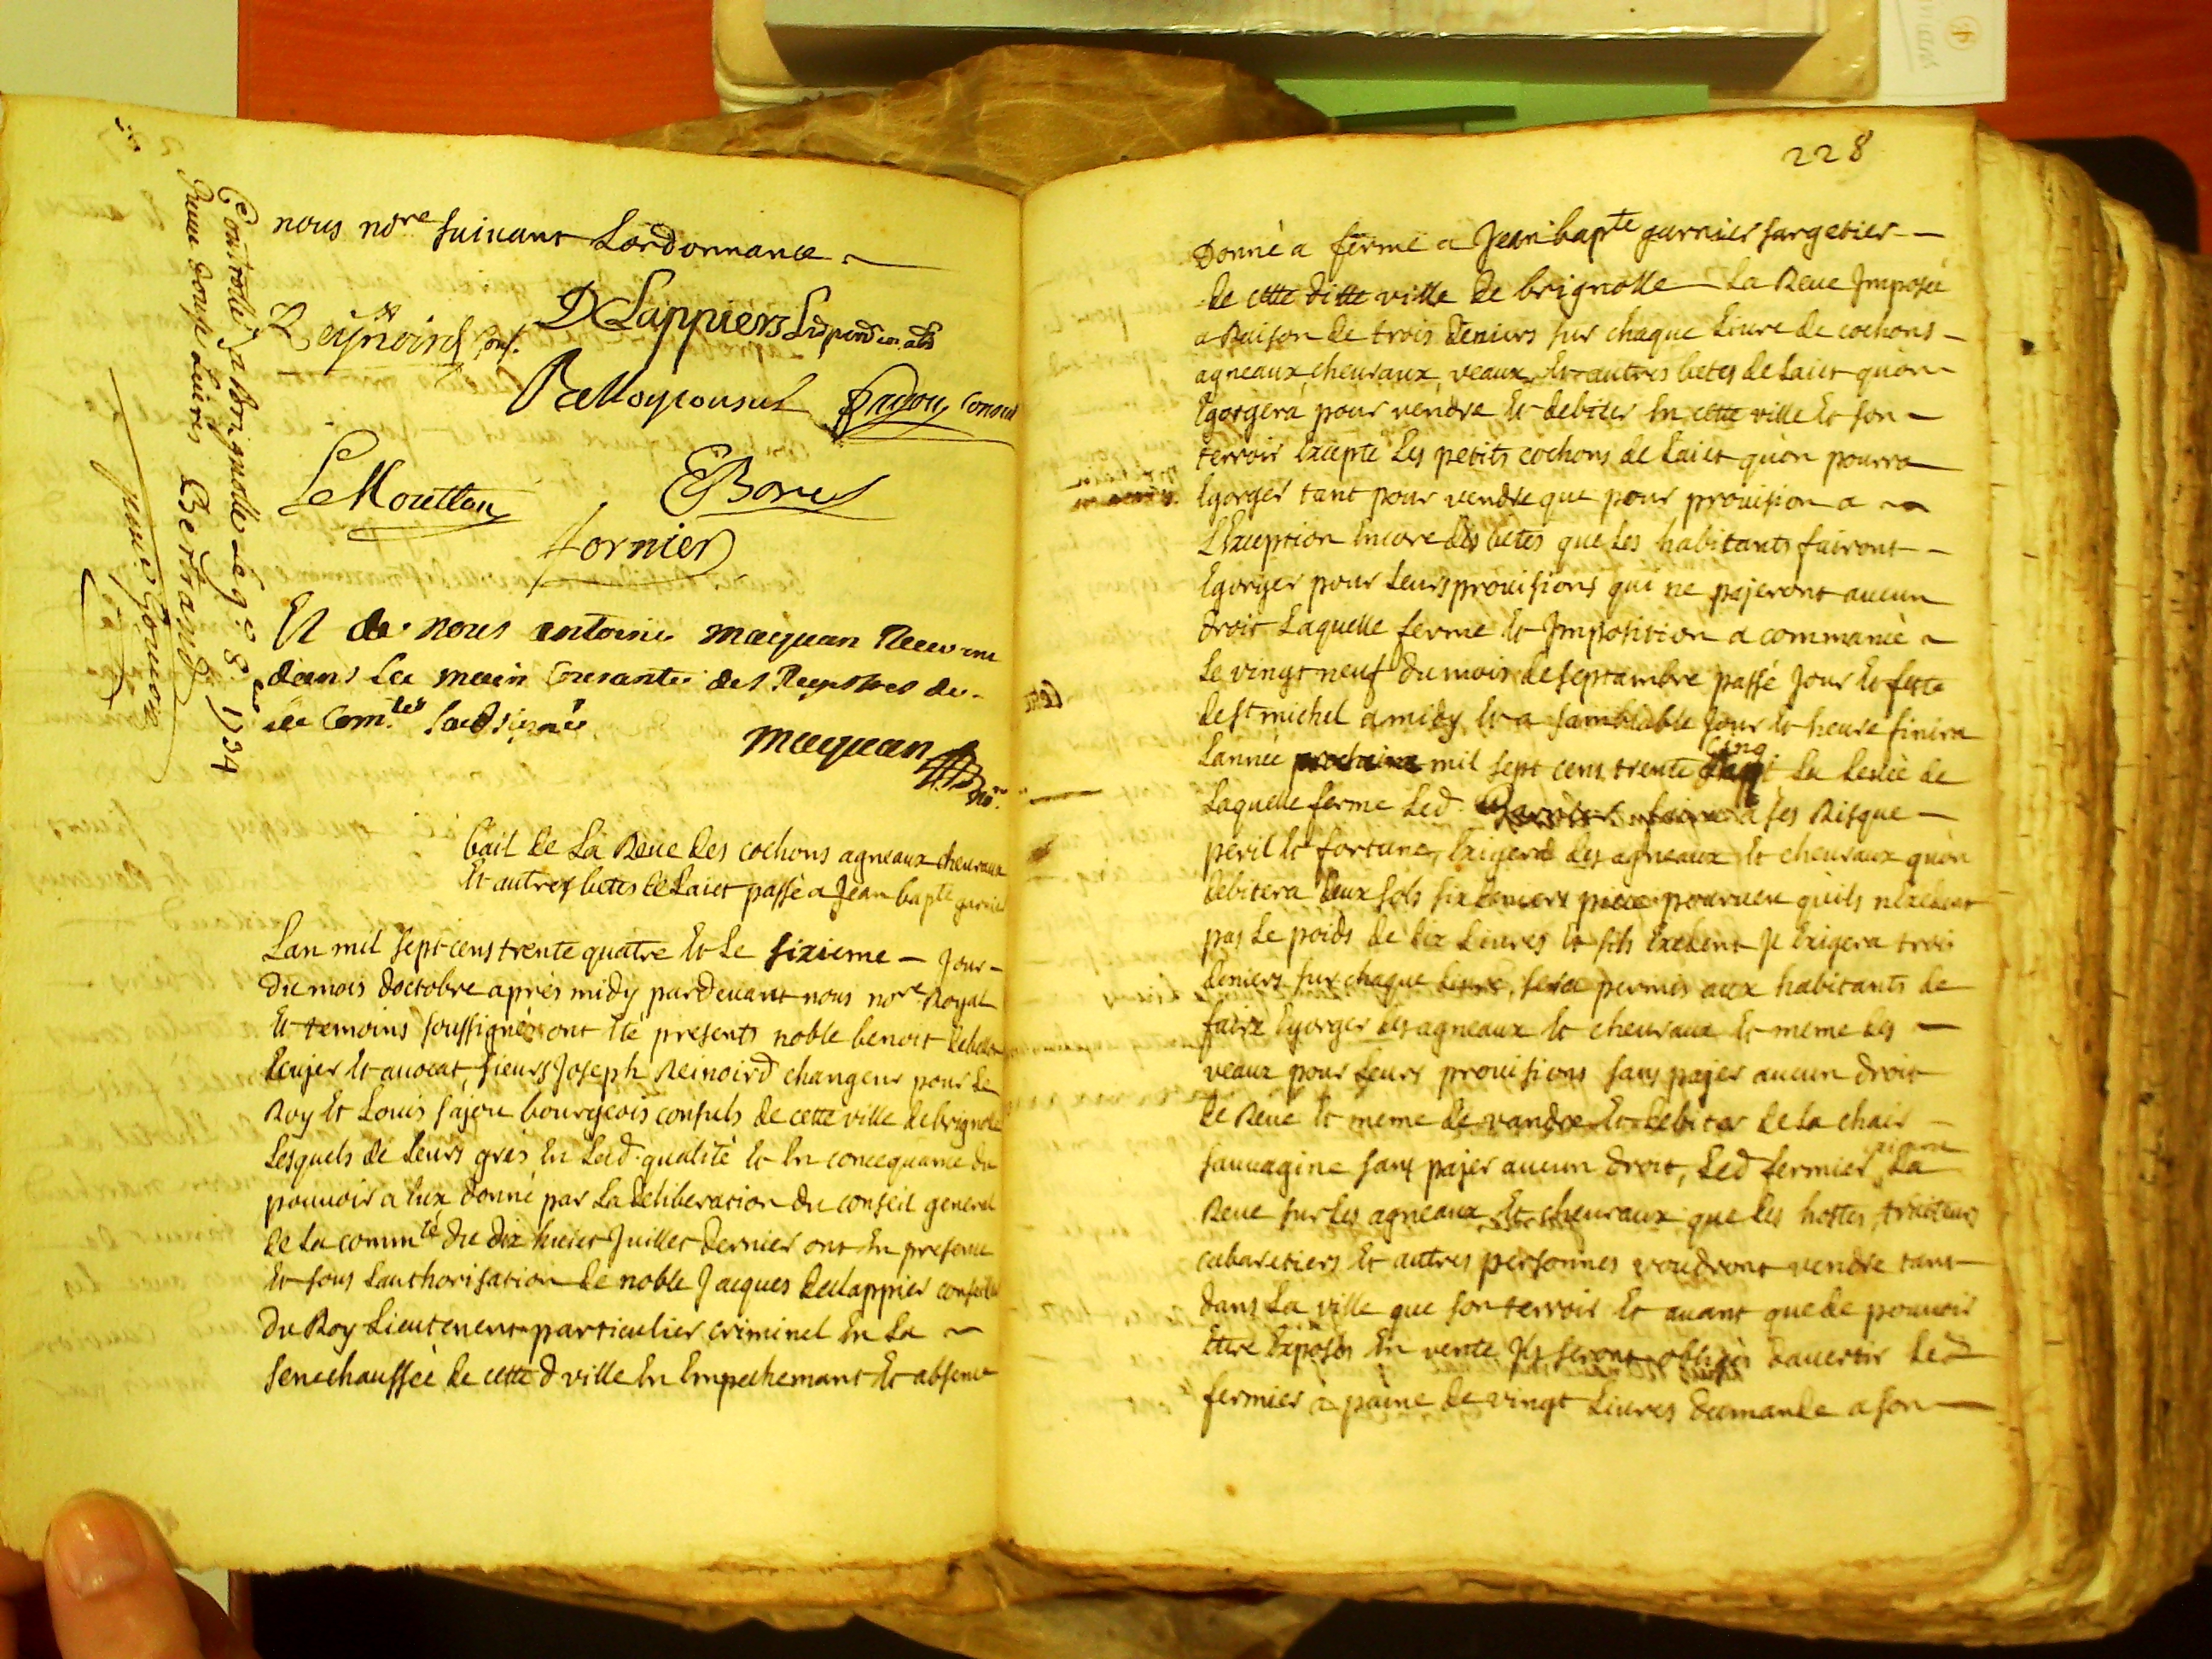 nous no.re suivant Lordonnance
Reijnoird Cons.
D Lappiers
consul
LeMoutton
EBonet
fornier
Et de nous antoine maquan
dans La main Courante des Registres de
la Com.té soubsigné
maquan
no.re
Controllé a brignolle Le 9.e 8.bre 1734
Reçeu douze Livres Bertrand
Bail de La Reve des cochons agneaux chevraux
Et autres betes de Laict passé a Jean bap.te garnier
Lan mil sept cens trente quatre Et Le sixieme Jour
du mois doctobre après midy pardevant nous no.re Royal
Et temoins soussignés ont été presents noble benoit
Ecujer Et avocat, sieurs Joseph Reinoird changeur pour Le
Roy Et Louis fajou bourgeois consuls de cette ville de brignolle
Lesquels de Leurs grés En Lad. qualité Et En concequance du
pouvoir a Eux donné par La deliberation du conseil general
de La comm.té du dix huict Juillet dernier ont En presence
Et sous Lauthorisation de noble Jacques declappier conseiller
du Roy Lieutenent particulier criminel En La
senechaussée de cette d ville En Empechemant Et absence
228
Donné a ferme a Jean bap.te garnier sargetier
de cette ditte ville de brignolle La Reve Imposée
a Raison de trois deniers sur chaque Livre de cochons
agneaux, chevraux, veaux Et autres betes de Laict quon
Egorgera pour vendre Et debiter En cette ville Et son
terroir Excepté Les petits cochons de Laict quon pourra
Egorger tant pour vendre que pour provision a
LException Encore des betes que Les habitants fairont
Egorger pour Leurs provisions qui ne pajeront aucun
droit Laquelle ferme Et Imposition a commancé
Le vingt neuf du mois de septambre passé Jour Et feste
de s.t michel a midy Et a samblable Jour Et heure finira
Lannée prochaine mil sept cens trente cinq La Levée de
Laquelle ferme Led. a ses Risque
peril Et fortune, Exigera des agneaux Et chevraux quon
debitera deux sols six deniers piece pourveu quils nExedent
pas Le poids de dix Livres Et sils Exedent Il Exigera trois
deniers sur chaque Livre, sera permis aux habitants de
faire Egorger des agneaux Et chevraux Et meme des
veaux pour Leurs provisions sans pajer aucun droit
de Reve Et meme de vandre Et debiter de La chair
sauvagine sans pajer aucun droit, Led fermier La
Reve sur Les agneaux Et chevraux que Les hostes, traiteurs
cabaretiers Et autres personnes voudront vendre tant
dans La ville que son terroir Et avant que de pouvoir
Etre Exposés En vente Ils seront obligés davertir Led
fermier a paine de vingt Livres damande a son